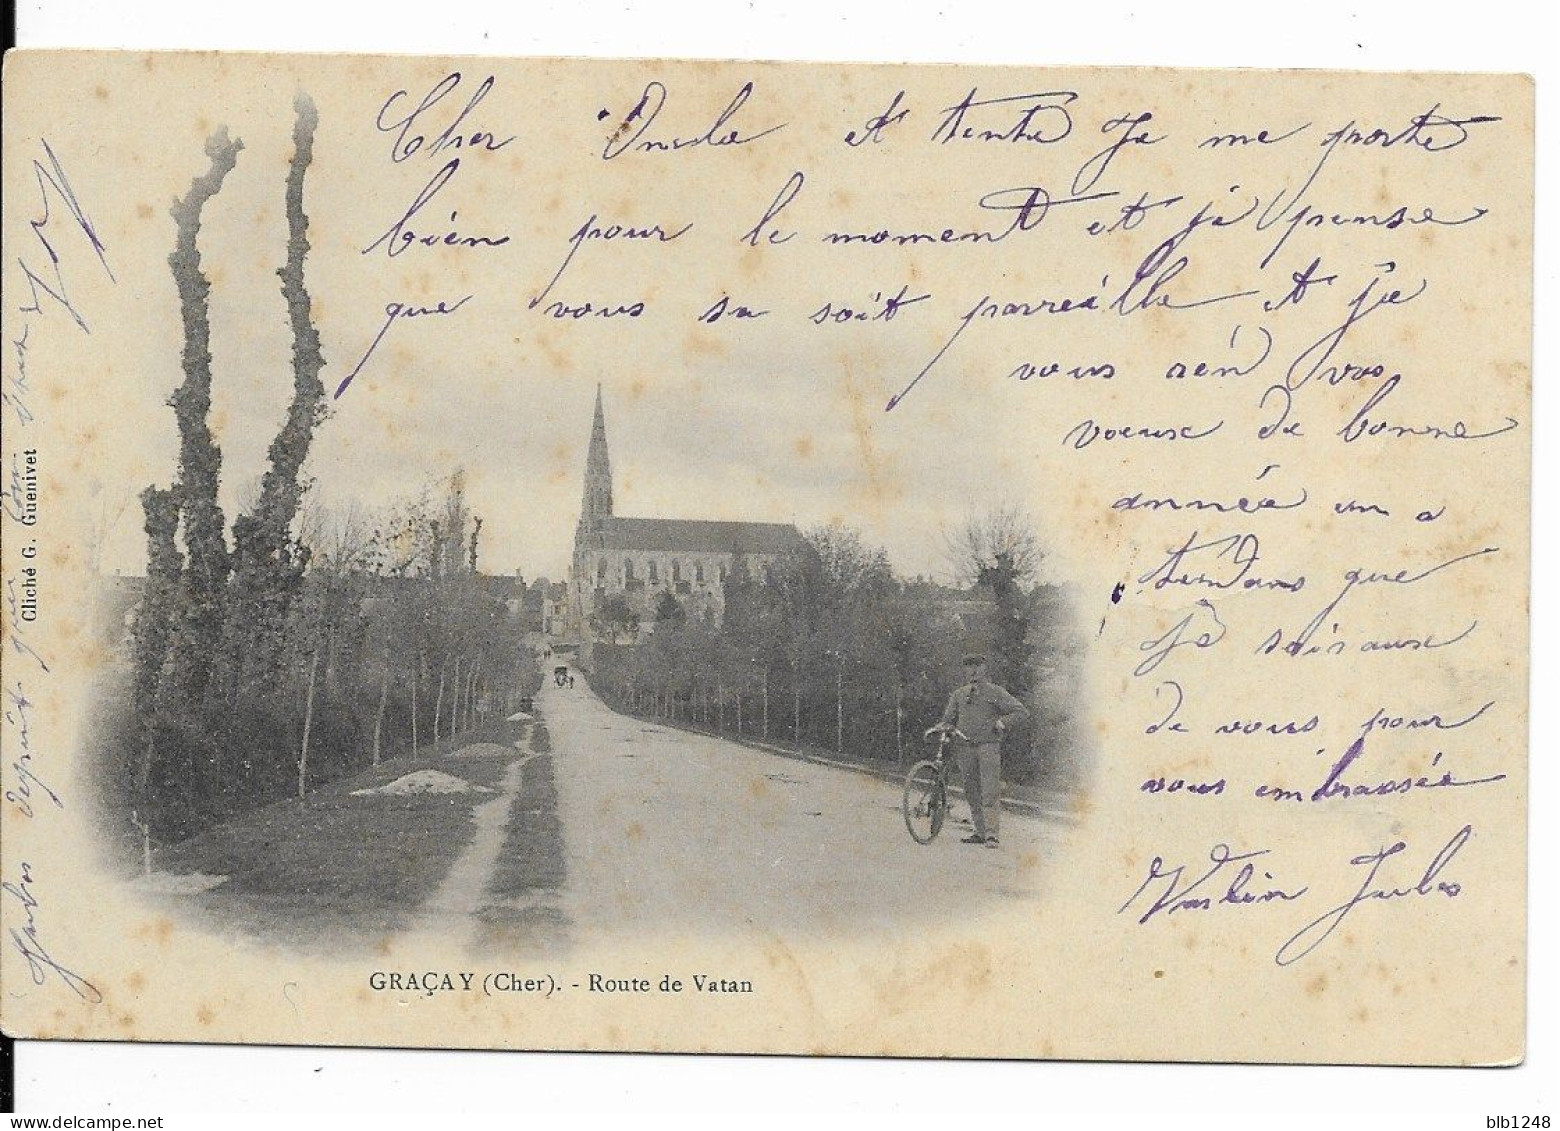 Cher Oncle et tente Je me porte
bien pour le moment et je pense
que vous sa soit parreille et je
vous ren vos
voeux de bonne
année en a
tendans que
Je soiraux
de vous pour
vous embrassée
Jules
GRAÇAY (Cher). - Route de Vatan
Cliché G. Guenivet
blb1248